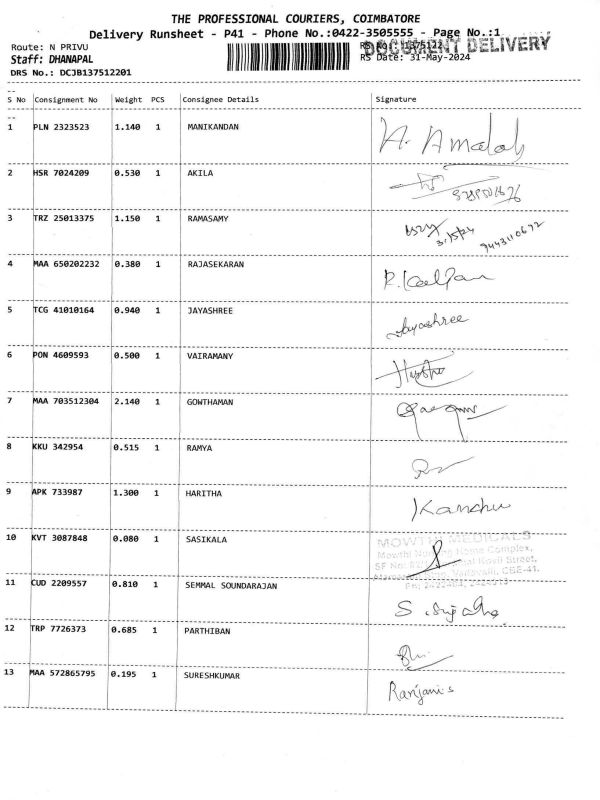 THE PROFESSIONAL COURIERS, COIMBATORE
Delivery Runsheet - P41 - Phone No.:0422-3505555 - Page No.:1
DOCUMENT DELIVERY
Route: N PRIVU
Staff: DHANAPAL
RS Date: 31-May-2024
DRS No.: DCJB137512201
--
S No Consignment No Weight PCS Consignee Details Signature
--
1 PLN 2323523 1.140 1 MANIKANDAN A. Amala
2 HSR 7024209 0.530 1 AKILA
3 TRZ 25013375 1.150 1 RAMASAMY 31/5/24 9443110672
4 MAA 650202232 0.380 1 RAJASEKARAN
5 TCG 41010164 0.940 1 JAYASHREE Jayashree
6 PON 4609593 0.500 1 VAIRAMANY
7 MAA 703512304 2.140 1 GOWTHAMAN
8 KKU 342954 0.515 1 RAMYA
9 APK 733987 1.300 1 HARITHA Kanchu
10 KVT 3087848 0.080 1 SASIKALA
MOWTHI MEDICALS
Mowthi Nursing Home Complex,
11 CUD 2209557 0.810 1 SEMMAL SOUNDARAJAN
12 TRP 7726373 0.685 1 PARTHIBAN
13 MAA 572865795 0.195 1 SURESHKUMAR Ranjani.s